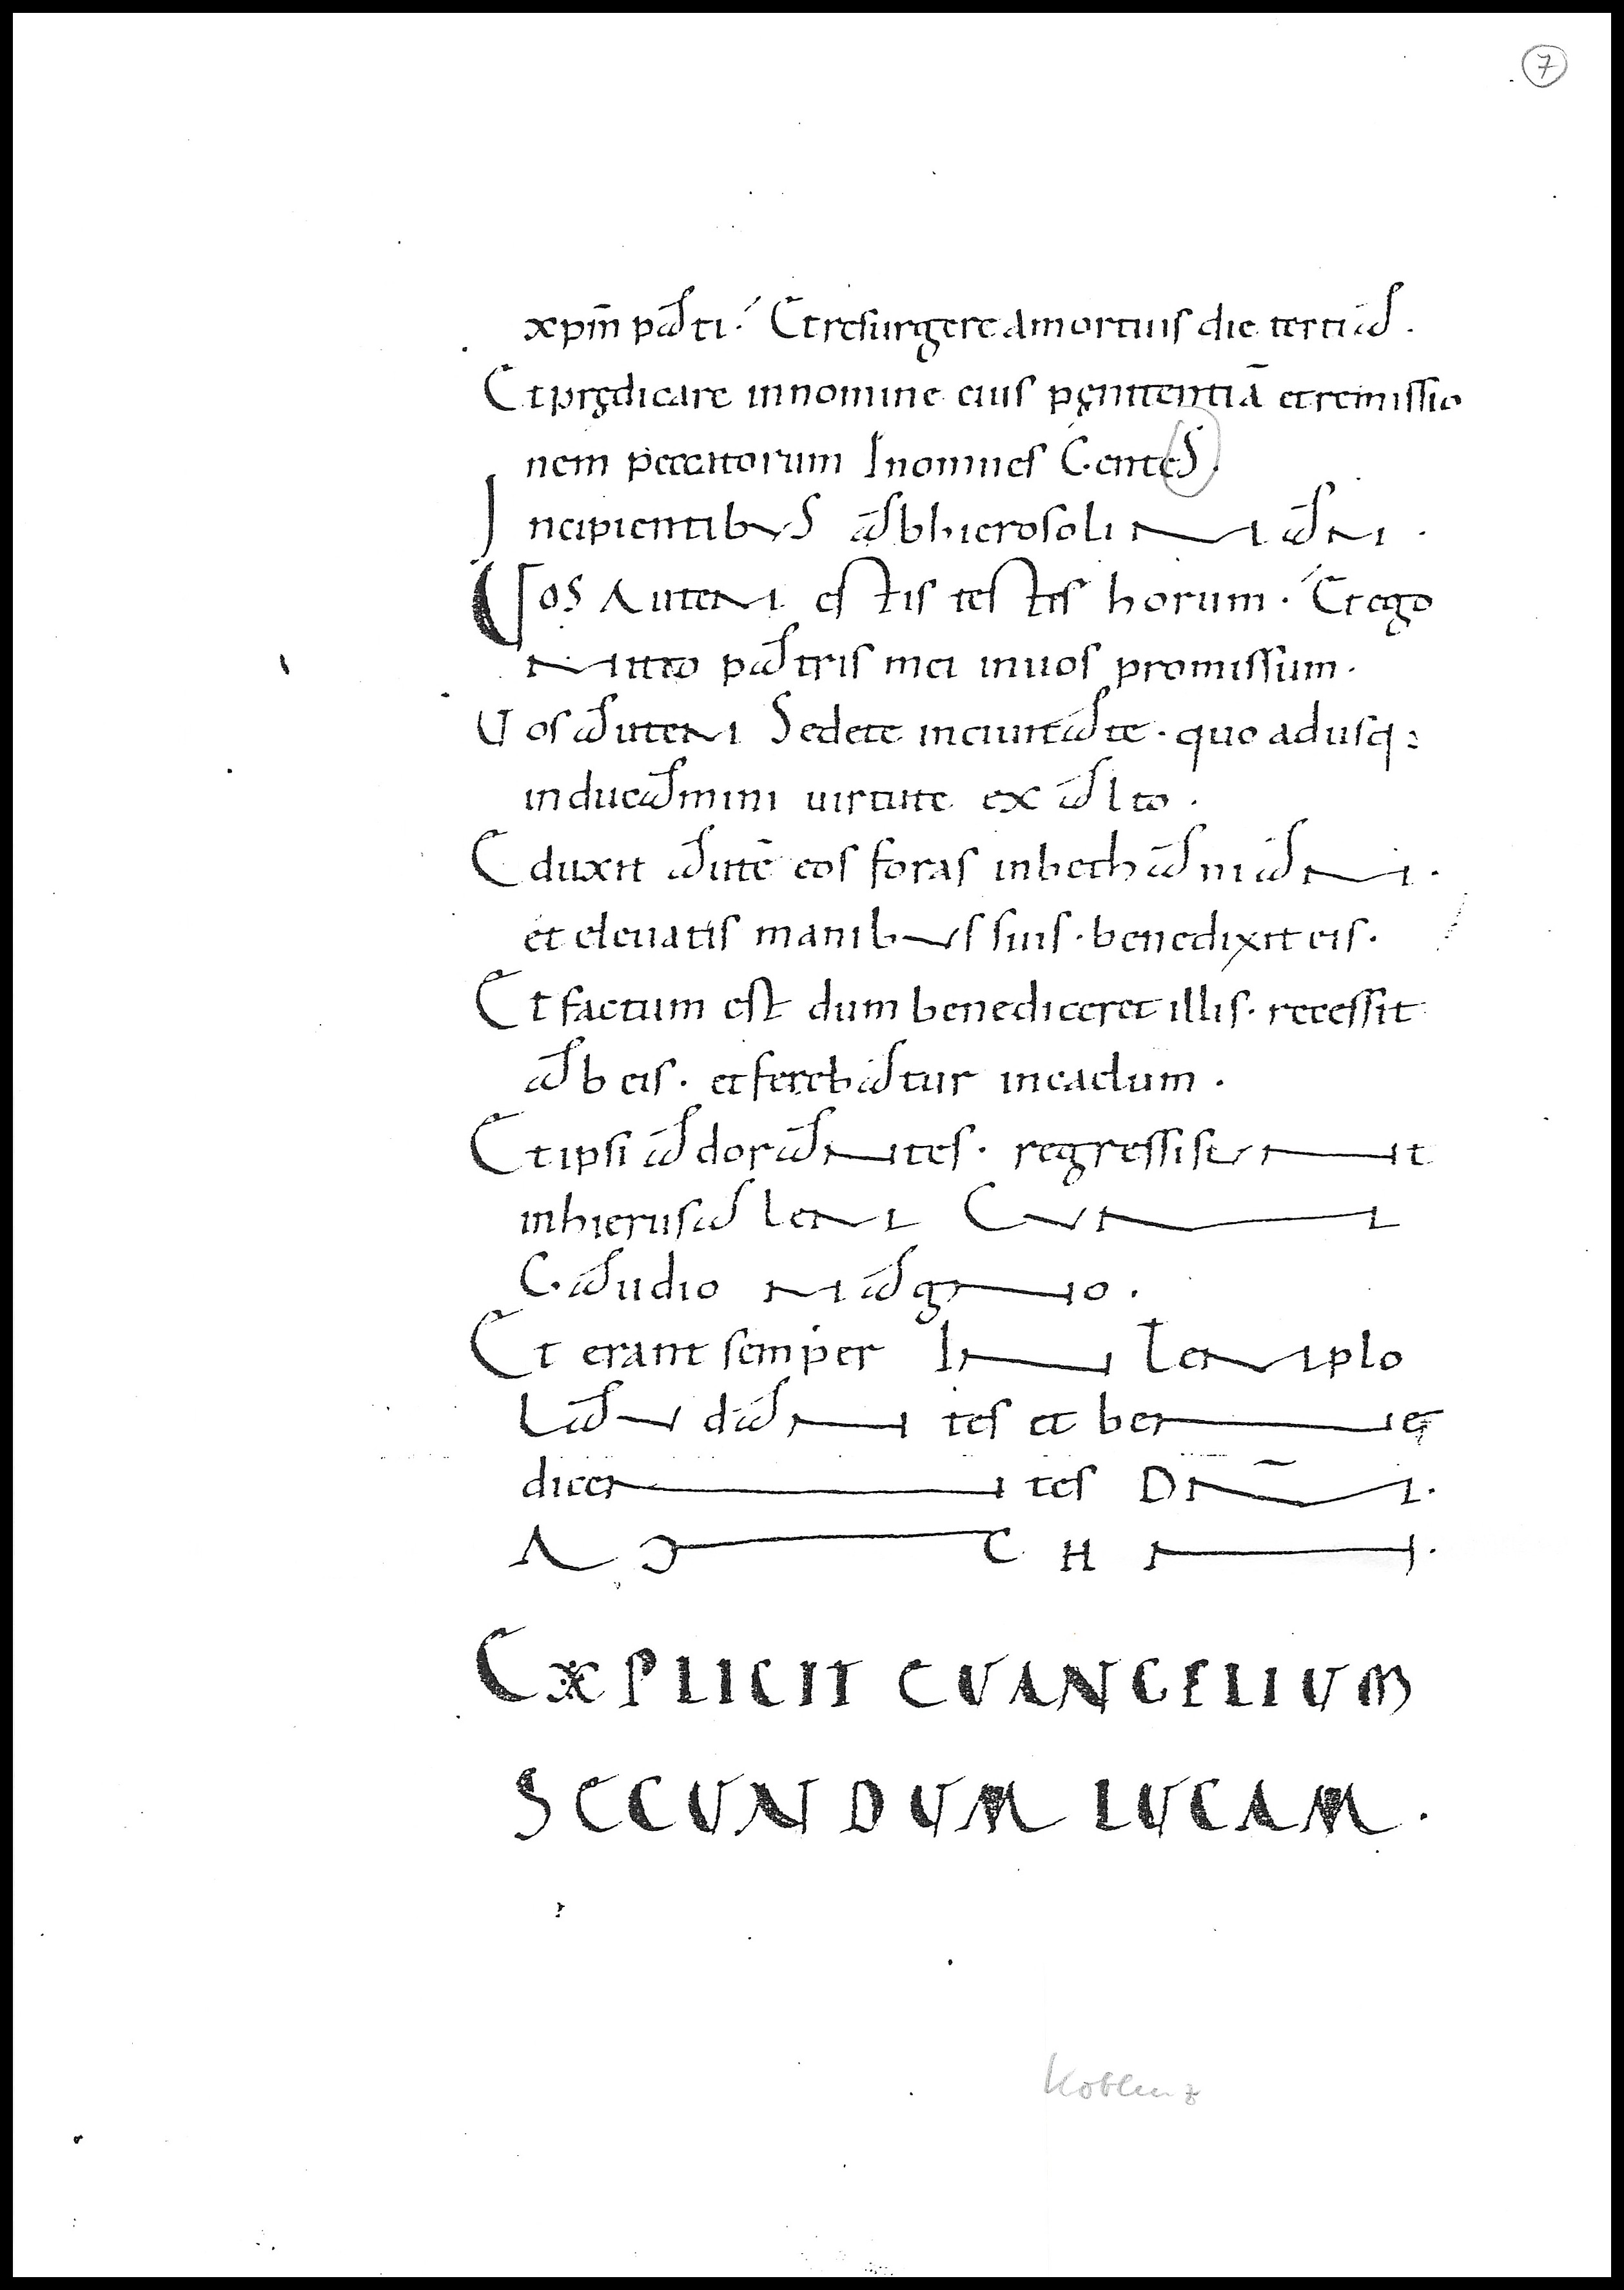 7
xpm̄ pati. Et resurgere a mortuis die tertia.
Et prędicare in nomine eius pęnitentiā et remissio
nem peccatorum In omnes Gentes.
Incipientibus ab hierosolimam.
Vos Autem estis testes horum. Et ego
mitto patris mei in uos promissum.
Vos autem Sedete in ciuitate. quo adusq:
induamini uirtute ex alto.
Eduxit autē eos foras in bethaniam.
et eleuatis manibus suis. benedixit eis.
Et factum est dum benediceret illis. recessit
ab eis. et ferebatur in caelum.
Et ipsi adorantes. regressi sunt
in hierusalem Cum
Gaudio magno.
Et erant semper In Templo
Laudantes et bene
dicentes Dn̄m.
AMEN.
EXPLICIT EVANGELIUM
SECUNDUM LUCAM.
Koblenz